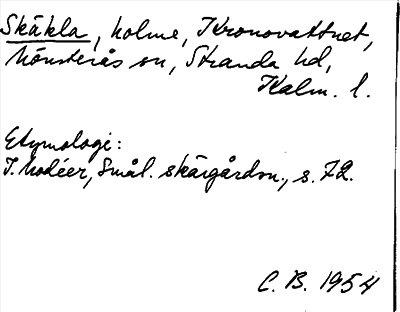 Skäkla, holme, Kronovattnet,
Mönsterås sn, Stranda hd,
Kalm. l.
Etymologi:
I. Modéer, Smål. skärgårdsn., s. 72.
C. B. 1954